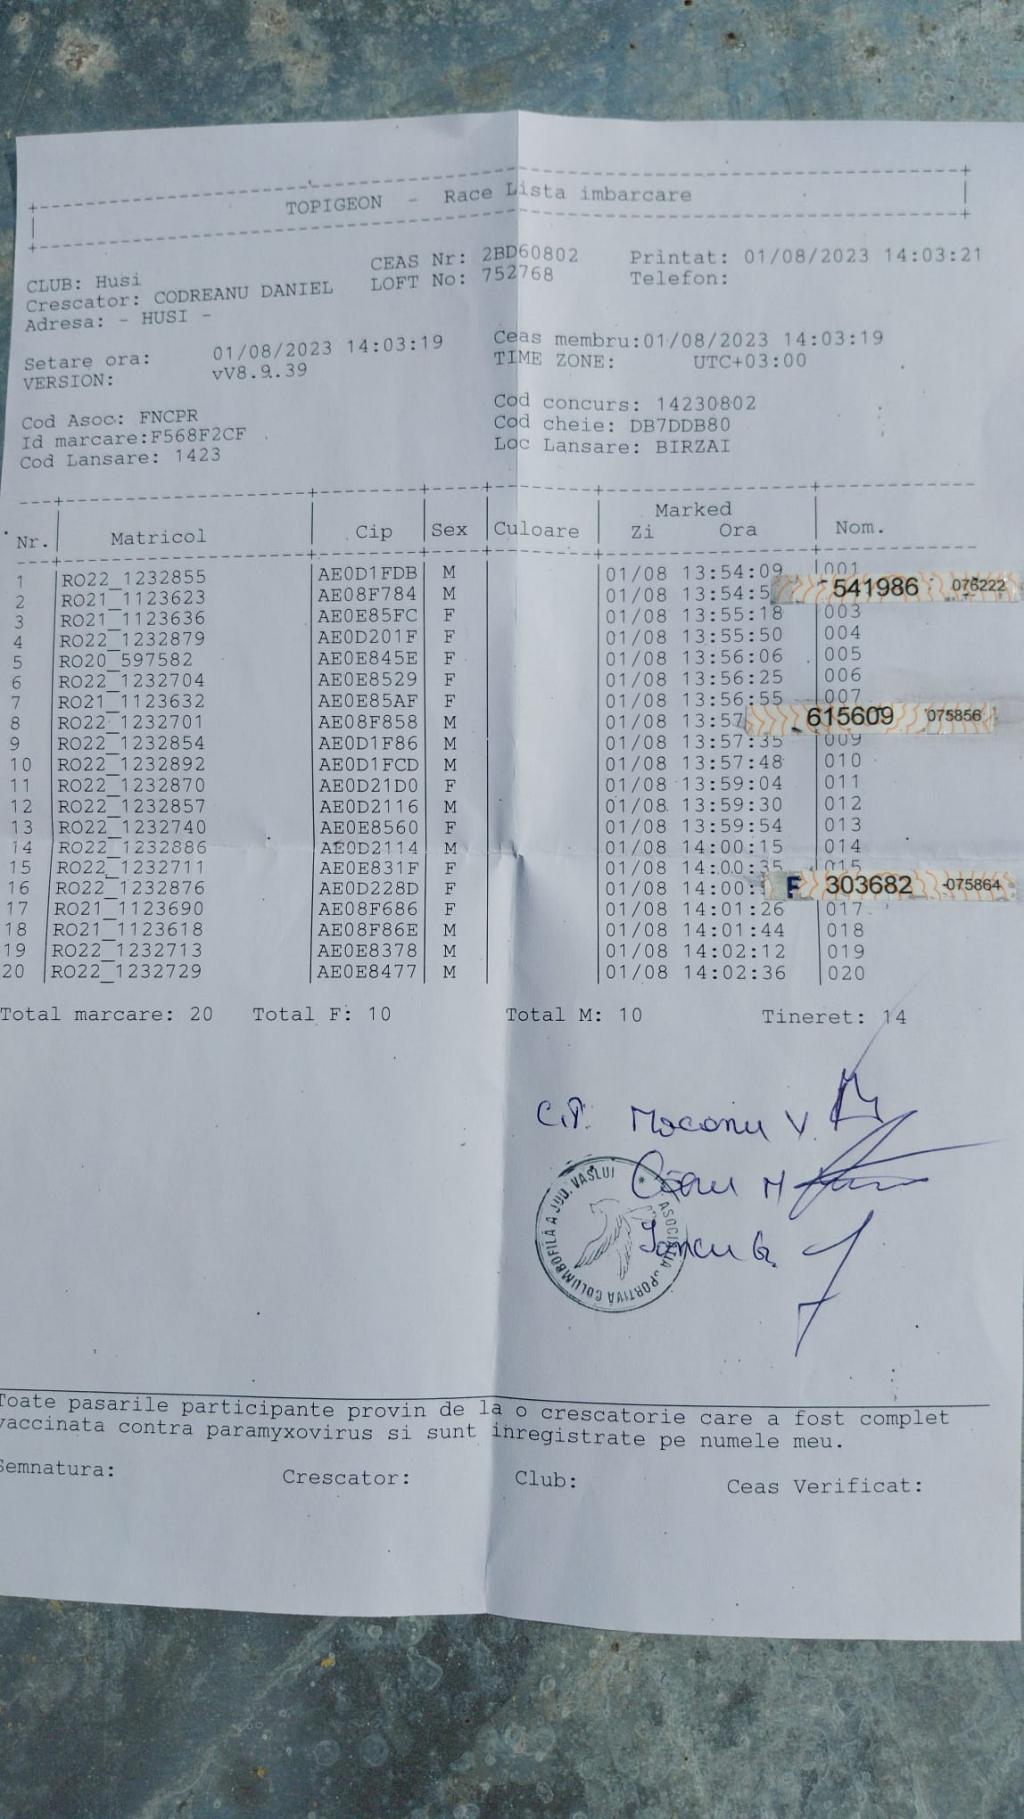 TOPIGEON - Race Lista imbarcare
CLUB: Husi CEAS Nr: 2BD60802 Printat: 01/08/2023 14:03:21
Crescator: CODREANU DANIEL LOFT No: 752768 Telefon:
Adresa: - HUSI -
Setare ora: 01/08/2023 14:03:19 Ceas membru:01/08/2023 14:03:19
VERSION: vV8.9.39 TIME ZONE: UTC+03:00
Cod Asoc: FNCPR Cod concurs: 14230802
Id marcare:F568F2CF Cod cheie: DB7DDB80
Cod Lansare: 1423 Loc Lansare: BIRZAI
Marked
Nr. Matricol Cip Sex Culoare Zi Ora Nom.
1 RO22_1232855 AE0D1FDB M 01/08 13:54:09 001
2 RO21_1123623 AE08F784 M 01/08 13:54:5 541986 076222
3 RO21_1123636 AE0E85FC F 01/08 13:55:18 003
4 RO22_1232879 AE0D201F F 01/08 13:55:50 004
5 RO20_597582 AE0E845E F 01/08 13:56:06 005
6 RO22_1232704 AE0E8529 F 01/08 13:56:25 006
7 RO21_1123632 AE0E85AF F 01/08 13:56:55 007
8 RO22_1232701 AE08F858 M 01/08 13:57 615609 075856
9 RO22_1232854 AE0D1F86 M 01/08 13:57:35 009
10 RO22_1232892 AE0D1FCD M 01/08 13:57:48 010
11 RO22_1232870 AE0D21D0 F 01/08 13:59:04 011
12 RO22_1232857 AE0D2116 M 01/08 13:59:30 012
13 RO22_1232740 AE0E8560 F 01/08 13:59:54 013
14 RO22_1232886 AE0D2114 M 01/08 14:00:15 014
15 RO22_1232711 AE0E831F F 01/08 14:00:35 015
16 RO22_1232876 AE0D228D F 01/08 14:00: F 303682 -075864
17 RO21_1123690 AE08F686 F 01/08 14:01:26 017
18 RO21_1123618 AE08F86E M 01/08 14:01:44 018
19 RO22_1232713 AE0E8378 M 01/08 14:02:12 019
20 RO22_1232729 AE0E8477 M 01/08 14:02:36 020
Total marcare: 20 Total F: 10 Total M: 10 Tineret: 14
Mocanu V.
Iancu G.
ASOCIATIA SPORTIVĂ COLUMBOFILĂ A JUD. VASLUI
Toate pasarile participante provin de la o crescatorie care a fost complet
vaccinata contra paramyxovirus si sunt inregistrate pe numele meu.
Semnatura: Crescator: Club: Ceas Verificat: